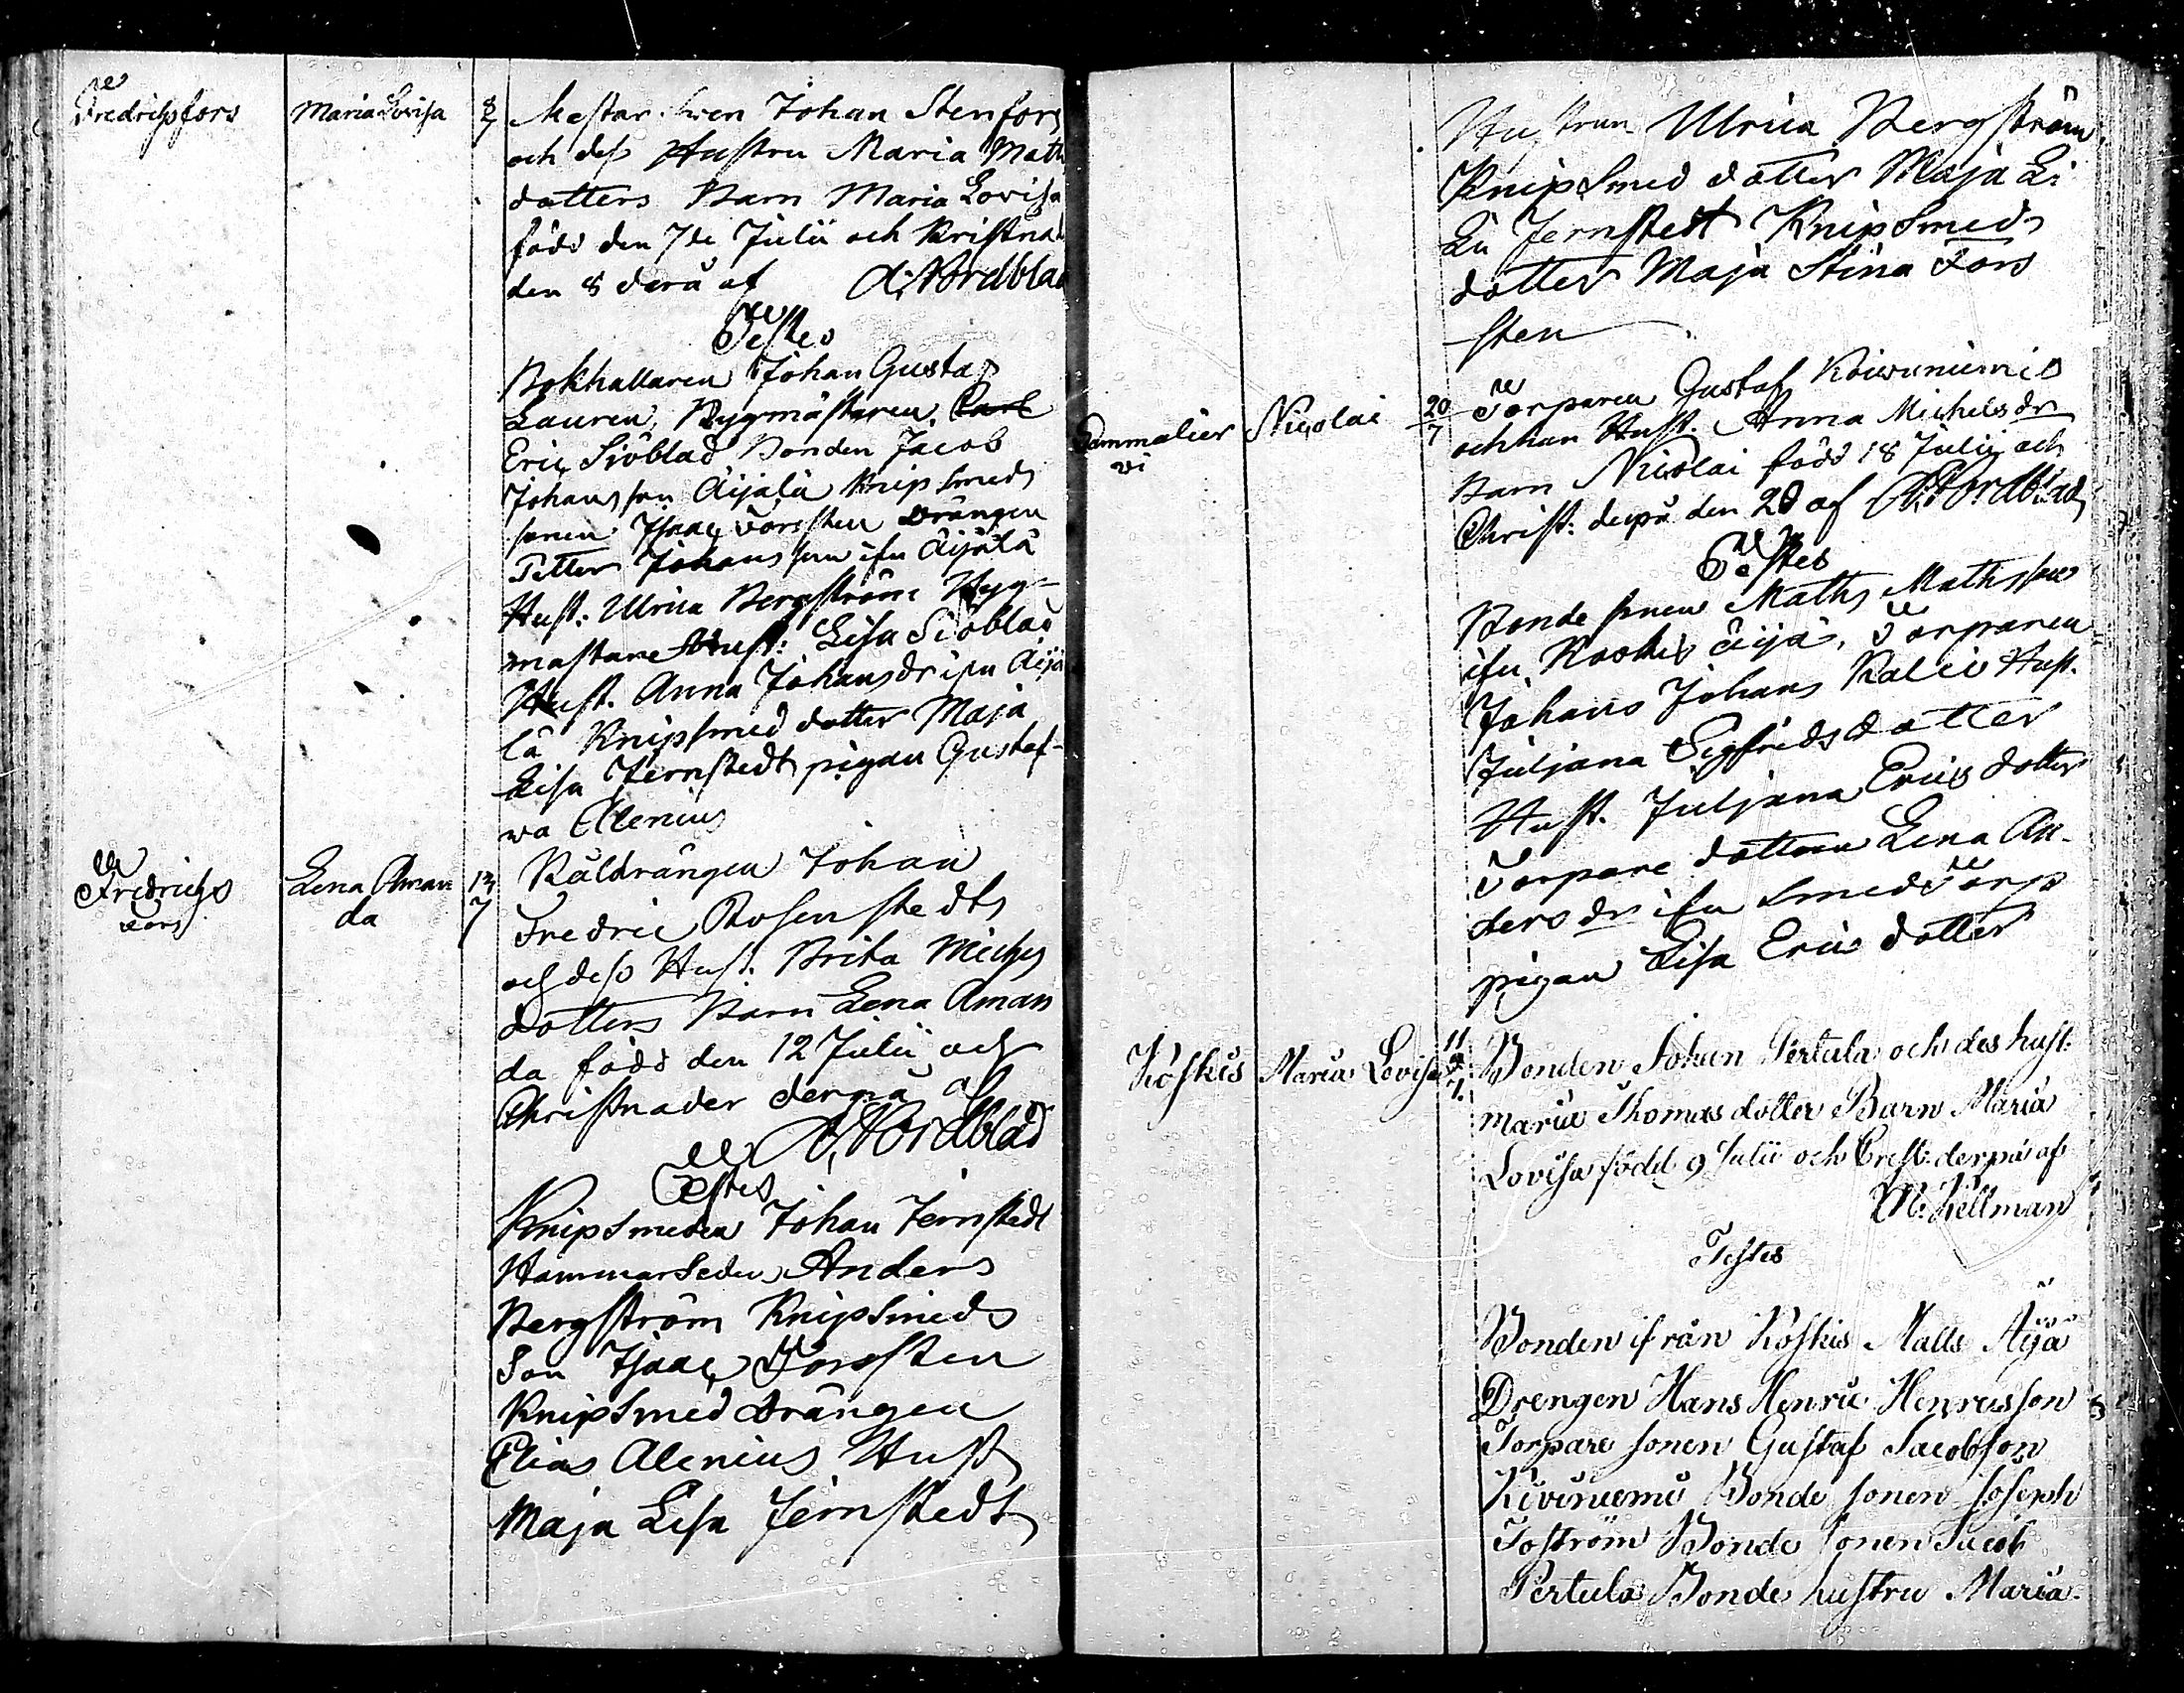 Fredrichsfors
Maria Lovisa
8/7
Mestar Sven Johan Stenfors
och dess Hustru Maria Math
dotters Barn Maria Lovisa
född den 7de Julii och Kristnad
den 8 derå af A: Nordblad
Testes
Bokhallaren Johan Gustaf
Lauren, Bygmästaren Carl
Eric Sjöblad Bonden Jacob
Johansson Äijälä Knipsmeds
sonen Isaac Forssten Drängen
Petter Johansson ifrn Äijälä
Hust: Ulrica Bergström Byg-
mästare Hust: Lisa Sjöblad
Hust. Anna Johansdr ifrn Äijä
lä Knipsmed dotter Maja
Lisa Jernstedt pigan Gustaf-
va Alenius
Fredrichs
fors
Lena Aman
da
13
7
Kåldrängen Johan
Fredric Rosenstedts
och dess Hust. Brita Michels
dotters Barn Lena Aman
da född den 12 Julii och
Christnader derpå af
A, Nordblad
Testes
Knipsmeden Johan Jernstedt
Hammarsmeden Anders
Bergström Knipsmeds
Son Isaac Forssten
Knipsmed Drängen
Elias Alenius Hust
Maja Lisa Jernstedt
Hustrun Ulrica Bergström
Knipsmed dotter Maja Li
sa Jernstedt Knipsmeds
dotter Maja Stina Fors
sten
Kammalier
vi
Nicolai
20
7
Torparen Gustaf Kiwiniemis
och han Hust. Anna Michelsdr
Barn Nicolai född 18 Julii och
Christ: derpå den 20 af A: Nordblad
Testes
Bonde sonen Maths Mathsson
ifrn Koskis äijä, Torparen
Johans Johans Kalei Hust.
Juljana Sigfridsdotter
Hust. Juljana Erics dotter
Torpare dottren Lena An-
dersdr ifrn Smedstorp
pigan Lisa Erics dotter
Koskis
Maria Lovisa
11
7
Bonden Johan Pertula och des hust:
Maria Thomasdotter Barn Maria
Lovisa född 9 Julii och Crist: derpå af
M: Kellman
Testes
Bonden ifrån Koskis Matts Äijä
Drengen Hans Henric Henricsson
Torpare sonen Gustaf Jacobson
Kiviniemi Bonde sonen Joseph
Toström Bonde sonen Jacob
Pertula Bonde hustru Maria